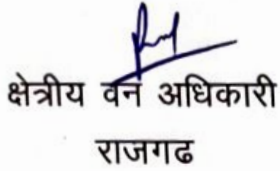 क्षेत्रीय वन अधिकारी
राजगढ